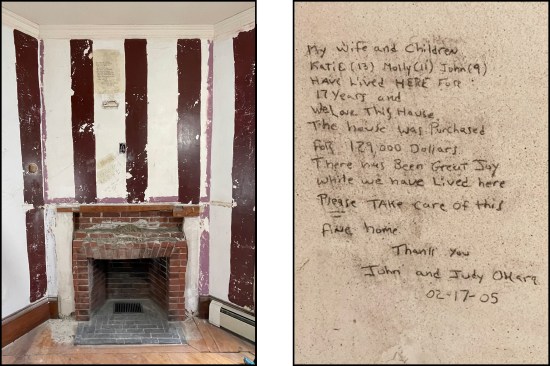 My Wife and Children
KatiE (13) Molly (11) John (9)
HAVE Lived HERE For
17 Years and
We Love This House
The house Was Purchased
For 129,000 Dollars
There has Been Great Joy
while we have Lived here
Please TAKE Care of this
fine home
Thank You
John and Judy OHara
02-17-05